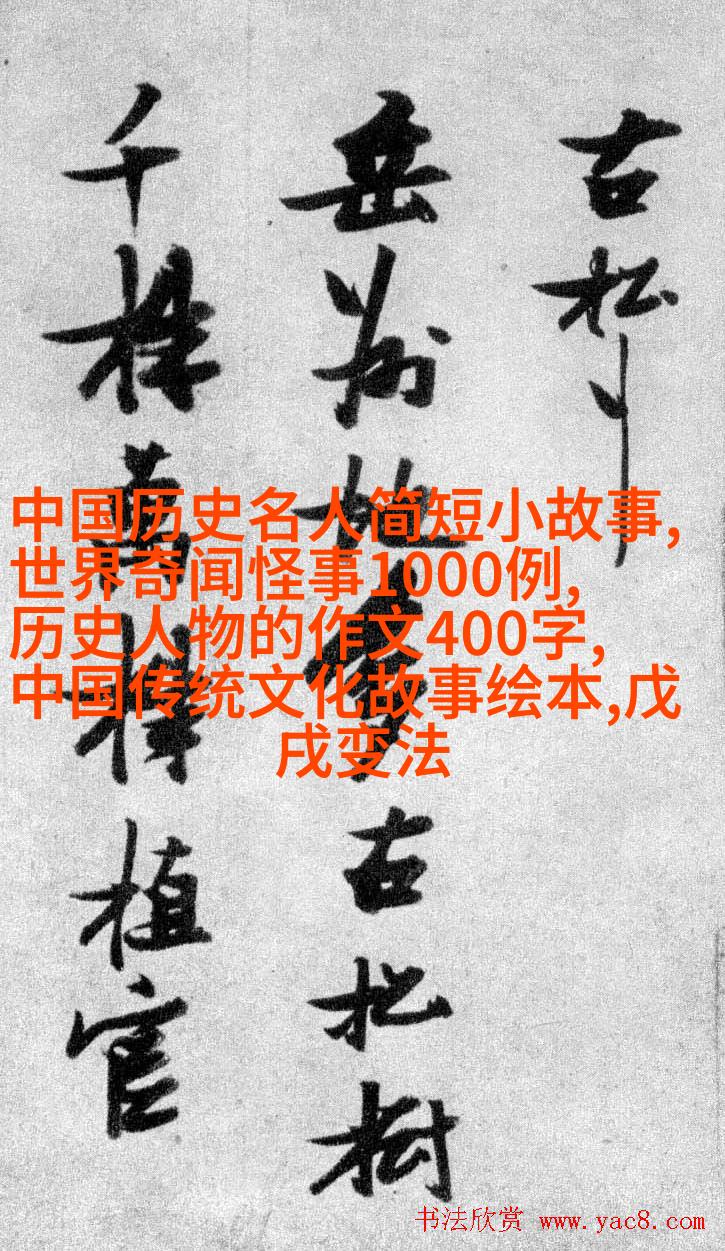 古松行
岳州地多古松樹
千株萬株植官
中国历史名人简短小故事,
世界奇闻怪事1000例,
历史人物的作文400字,
中国传统文化故事绘本,戊
戌变法
书法欣赏 www.yac8.com